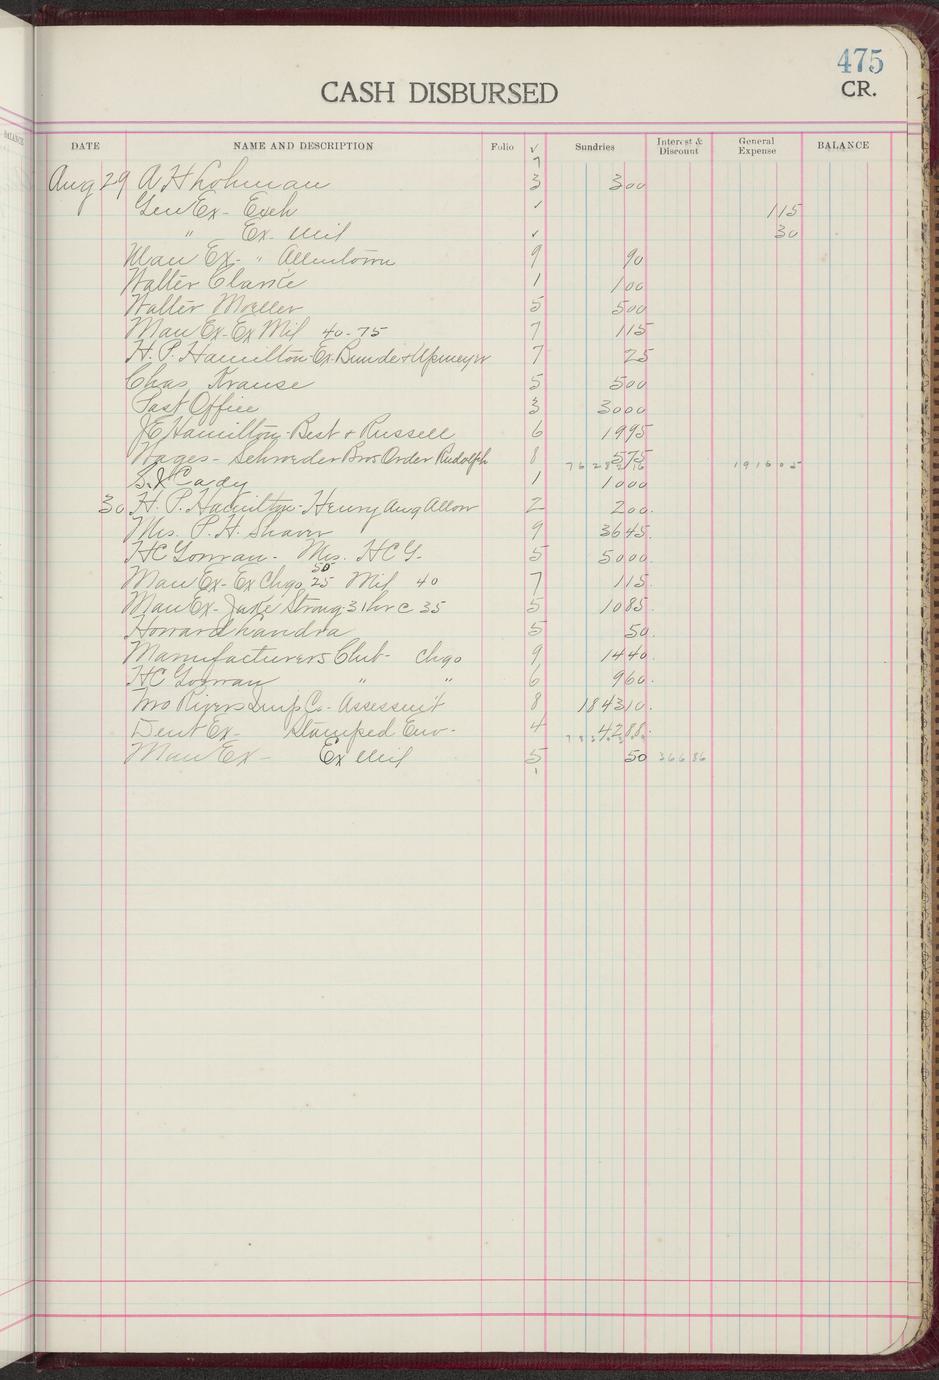 475
CASH DISBURSED
CR.
BALANCE
DATE NAME AND DESCRIPTION Folio √ Sundries Interest & Discount General Expense BALANCE
7
Aug 29 A H Lohman 3 300
Gen Ex - Exch ✓ 115
" Ex - Mil ✓ 30
Man Ex - " Allentown 9 90
Walter Clarke 1 100
Walter Moeller 5 500
Man Ex - Ex Mil 40 - 75 7 115
H. P. Hamilton - Ex. Bunde & Upmeyer 7 25
Chas Krause 5 500
Post Office 3 3000
JE Hamilton - Best & Russell 6 1995
Wages - Schroeder Bros Order Rudolph 8 575
191605
S. J. Cady 1 1000
30 H. P. Hamilton - Henry Aug Allow 2 200.
Mrs. P. H. Shaver 9 3645.
HC Gorman - Mrs. HC G. 5 5000.
50
Man Ex - Ex Chgo, 25 Mil 40 7 115.
Man Ex - Jake Strong - 31 hr c 35 5 1085.
Howard 5 50.
Manufacturers Club - Chgo 9 1440.
HC Gorman " " 6 960.
Two Rivers Imp Co. - Assessm't 8 184310.
Dent Ex - Stamped Env. 4 4288.
Man Ex - Ex Mil 5 50 36686
1